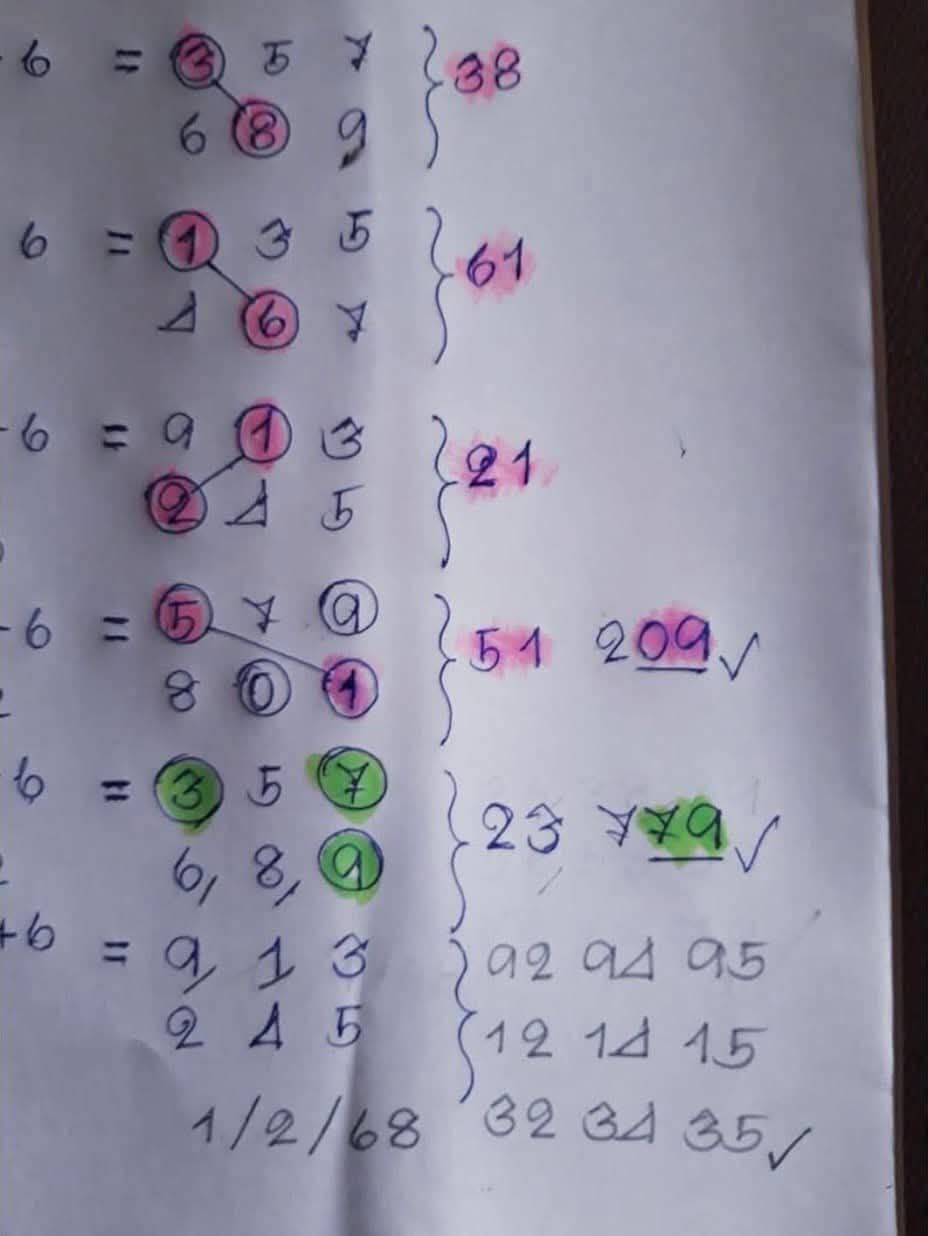 6 = 3 5 7 } 38
6 8 9
6 = 1 3 5 } 61
4 6 7
-6 = 9 1 3 } 21
2 4 5
-6 = 5 7 9 } 51 209 ✓
8 0 1
6 = 3 5 7 } 23 779 ✓
6, 8, 9
+6 = 9, 1 3 } 92 94 95
2 4 5 12 14 15
1/2/68 32 34 35 ✓